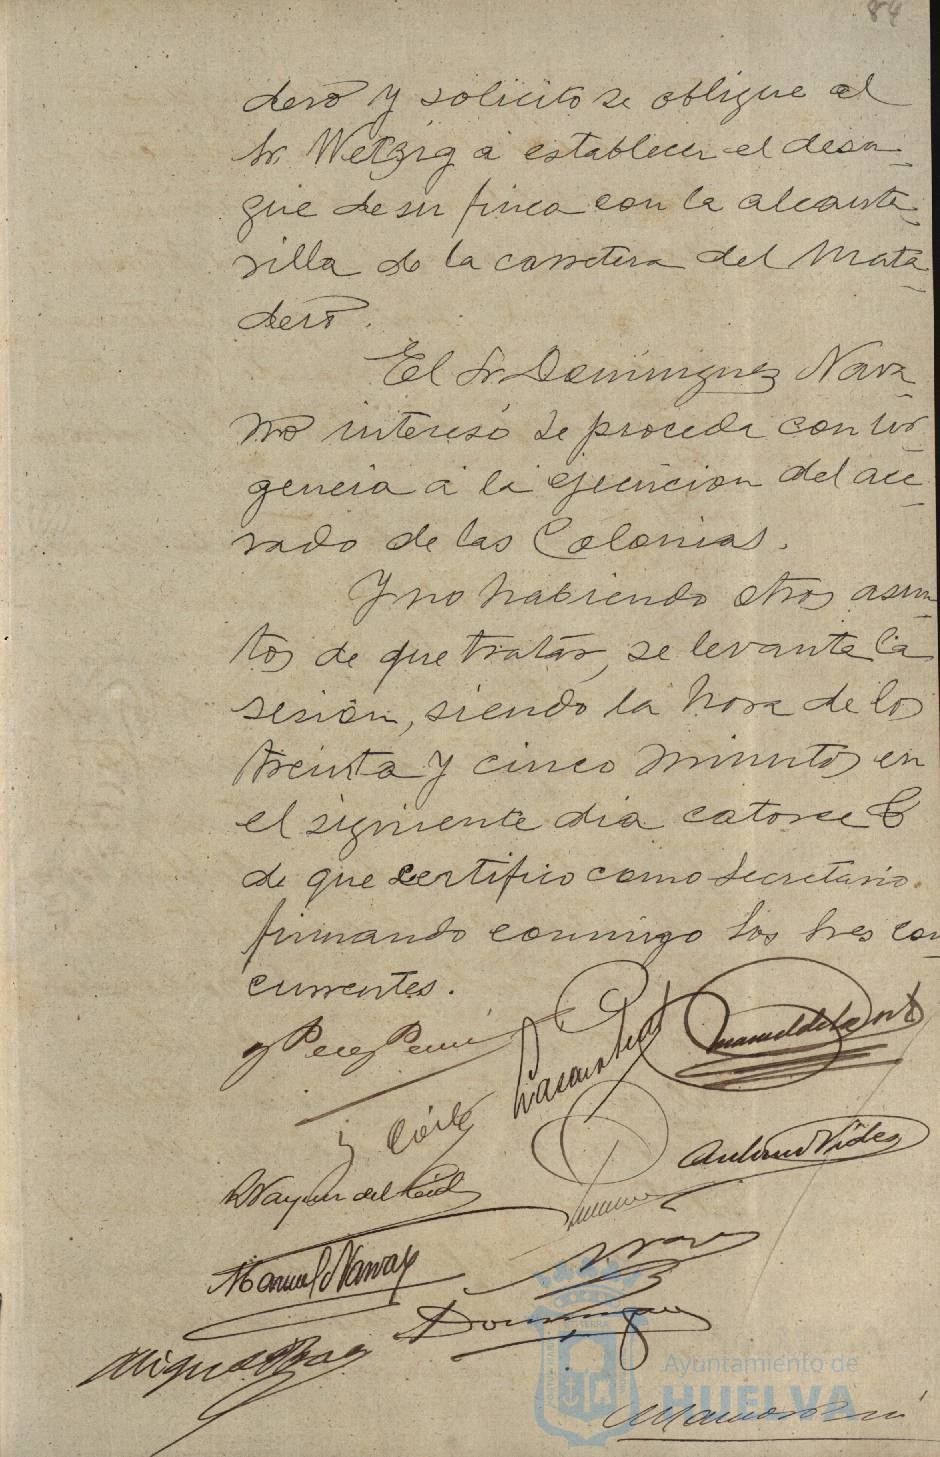 84
dero y solicito se obligue al
Sr. Wetzig a establecer el desa-
gue de su finca con la alcanta-
rilla de la carretera del Mata-
dero.
El Sr. Dominguez Nava-
rro interesó se proceda con ur-
gencia á la ejecucion del ace-
rado de las Colonias.
Y no habiendo otros asun-
tos de que tratar, se levanta la
sesión, siendo la hora de los
treinta y cinco minutos en
el siguiente dia catorce
de que certifico como Secretario
firmando conmigo los Sres con-
currentes.
Manuel de la
J Córte
Antonio Vides
Manuel Navarro
Dominguez
Miguel
Ayuntamiento de
HUELVA